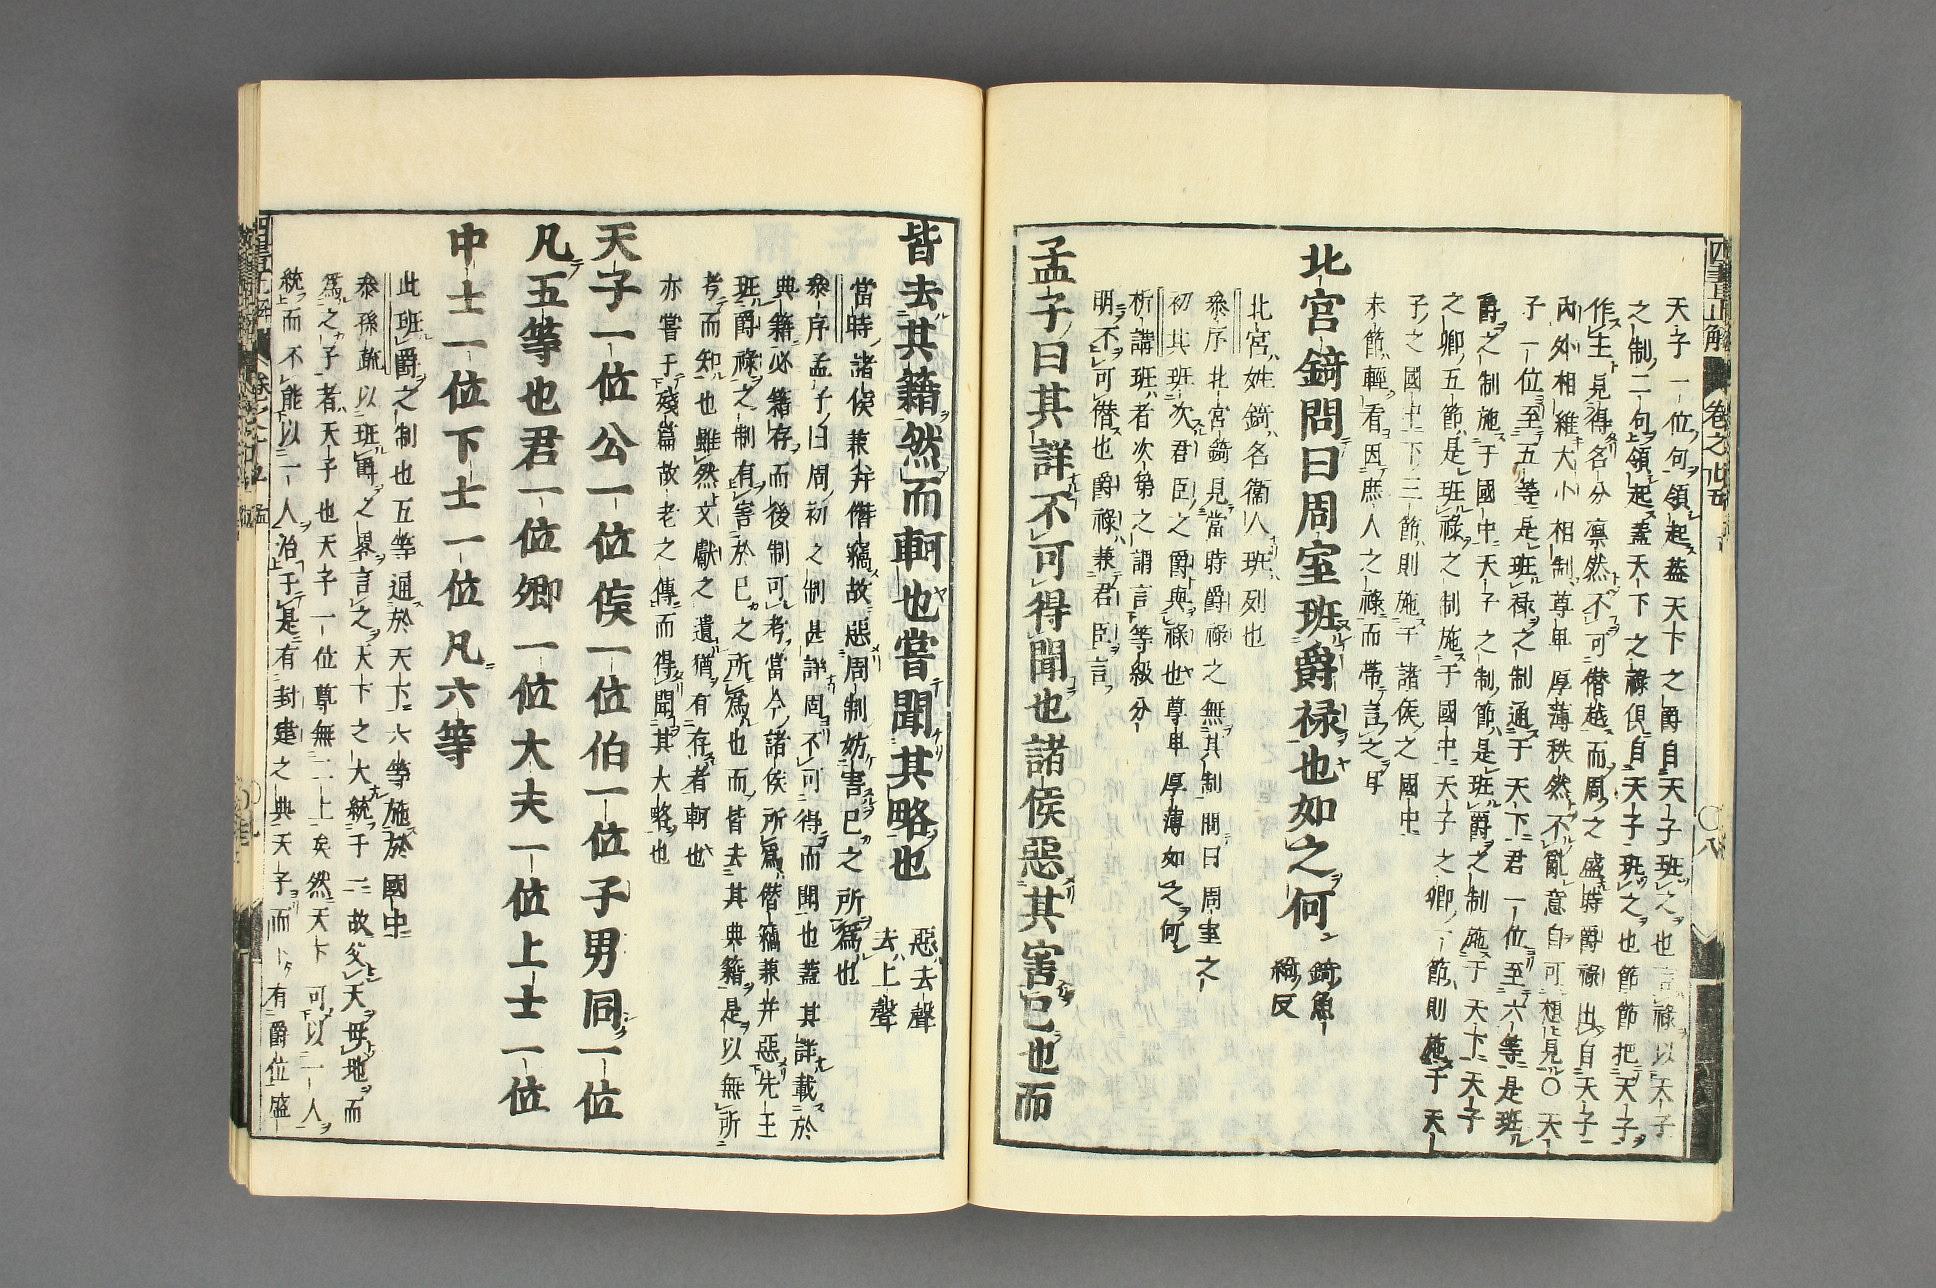 四書正解
卷之
八
天子一位句領起蓋天下之爵自天子班之也言祿以天子
之制二句領起蓋天下之祿俱自天子班之也節節把天子
作主見得名分凛然不可僭越而周之盛時爵祿出自天子
內外相維大小相制尊卑厚薄秩然不亂意自可想見〇天
子一位至五等是班祿之制通于天下君一位至六等是班
爵之制施于國中天子之制節是班爵之制施于天下天子
之卿五節是班祿之制施于國中天子之卿一節則施于天
子之國中下三節則施于諸侯之國中
末節輕看因庶人之祿而帶言之耳
北宮錡問曰周室班爵祿也如之何
錡魚
綺反
北宮姓錡名衛人班列也
叅序北宮錡見當時爵祿之無其制問曰周室之
初其班次君臣之爵與祿也尊卑厚薄如之何
析講班者次第之謂言等級分
明不可僭也爵祿兼君臣言
孟子曰其詳不可得聞也諸侯惡其害己也而
皆去其籍然而軻也嘗聞其略也
惡去聲
去上聲
當時諸侯兼并僭竊故惡周制妨害己之所爲也
叅序孟子曰周初之制其詳固不可得而聞也蓋其詳載於
典籍必籍存而後制可考當今諸侯所爲僭竊兼并惡先王
班爵祿之制有害於已之所爲也而皆去其典籍是以無所
考而知也雖然文獻之遺猶有存者軻也
亦嘗于殘篇故老之傳而得聞其大略也
天子一位公一位侯一位伯一位子男同一位
凡五等也君一位卿一位大夫一位上士一位
中士一位下士一位凡六等
此班爵之制也五等通於天下六等施於國中
叅孫疏以班爵之畧言之天下之大統于一故父天母地而
爲之子者天子也天子一位尊無二上矣然天下可以一人
統而不能以一人治于是有封建之典天子而下有爵位盛